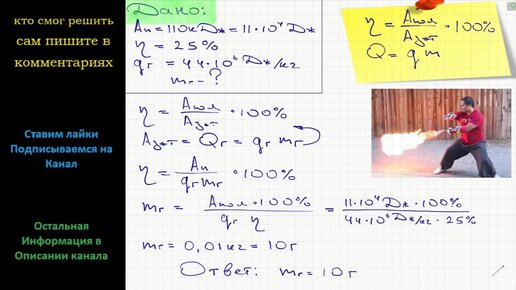 кто смог решить
сам пишите в
комментариях
Ставим лайки
Подписываемся на
Канал
Остальная
Информация в
Описании канала
Дано:
Aп = 110кДж = 11·10⁴Дж
η = 25%
qг = 44·10⁶Дж/кг
mг - ?
η = Aпол/Aзат · 100%
Q = q m
η = Aпол/Aзат · 100%
Aзат = Qг = qг mг
η = Aп/qг mг · 100%
mг = Aпол · 100%/qг η = 11·10⁴Дж · 100%/44·10⁶Дж/кг · 25%
mг = 0,01кг = 10г
Ответ: mг = 10г